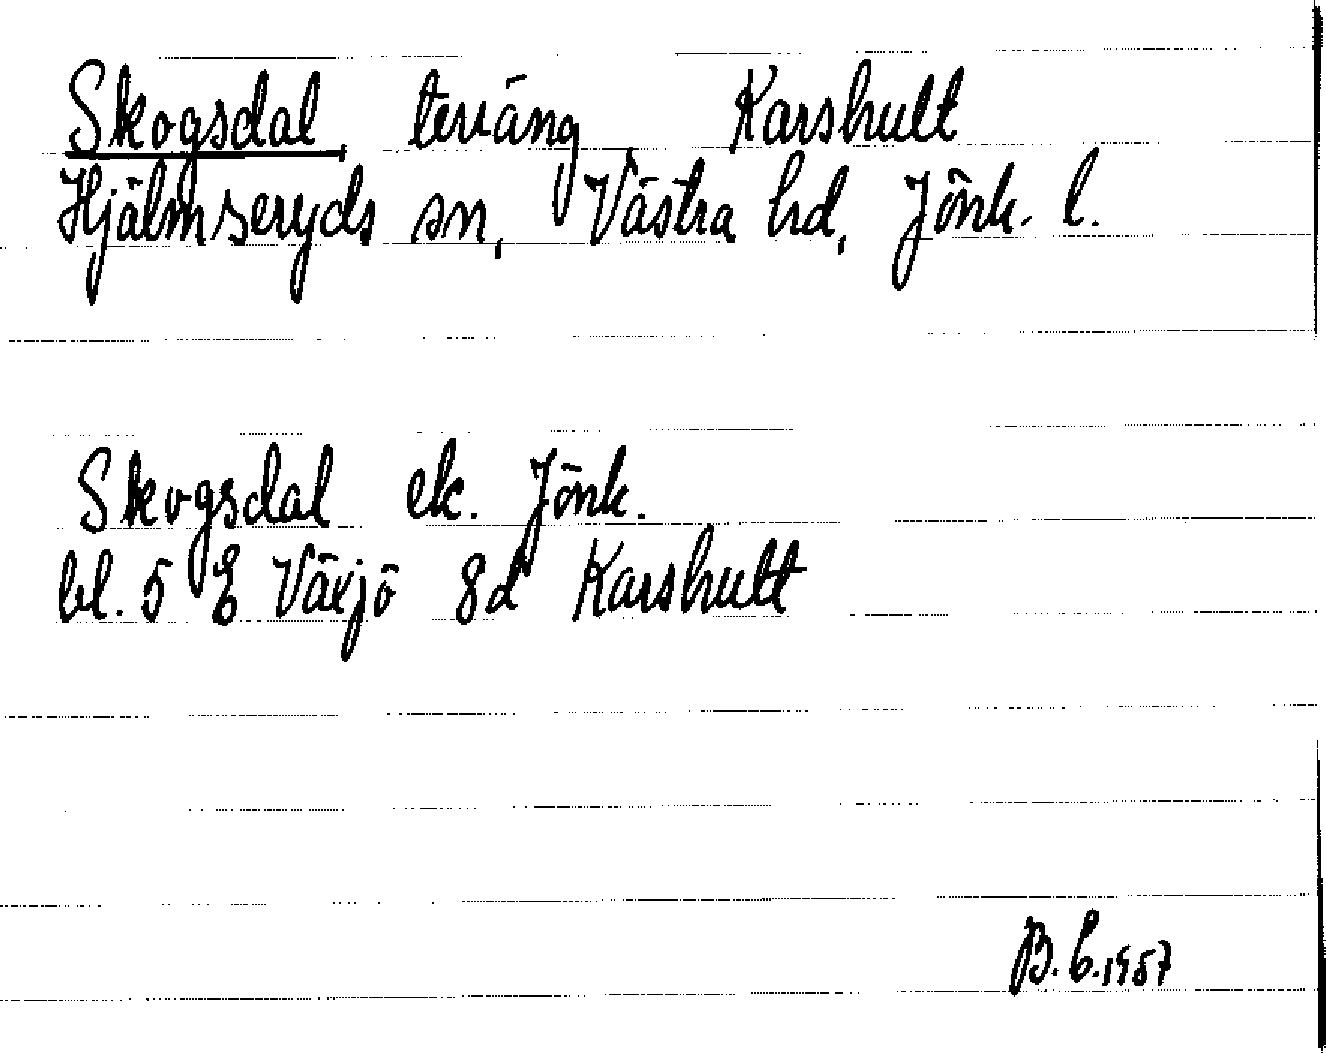 Skogsdal, terräng Karshult
Hjälmseryds sn, Västra hd, Jönk. l.
Skogsdal ek. Jönk.
bl. 5 E Växjö 8d Karshult
B.E. 1957